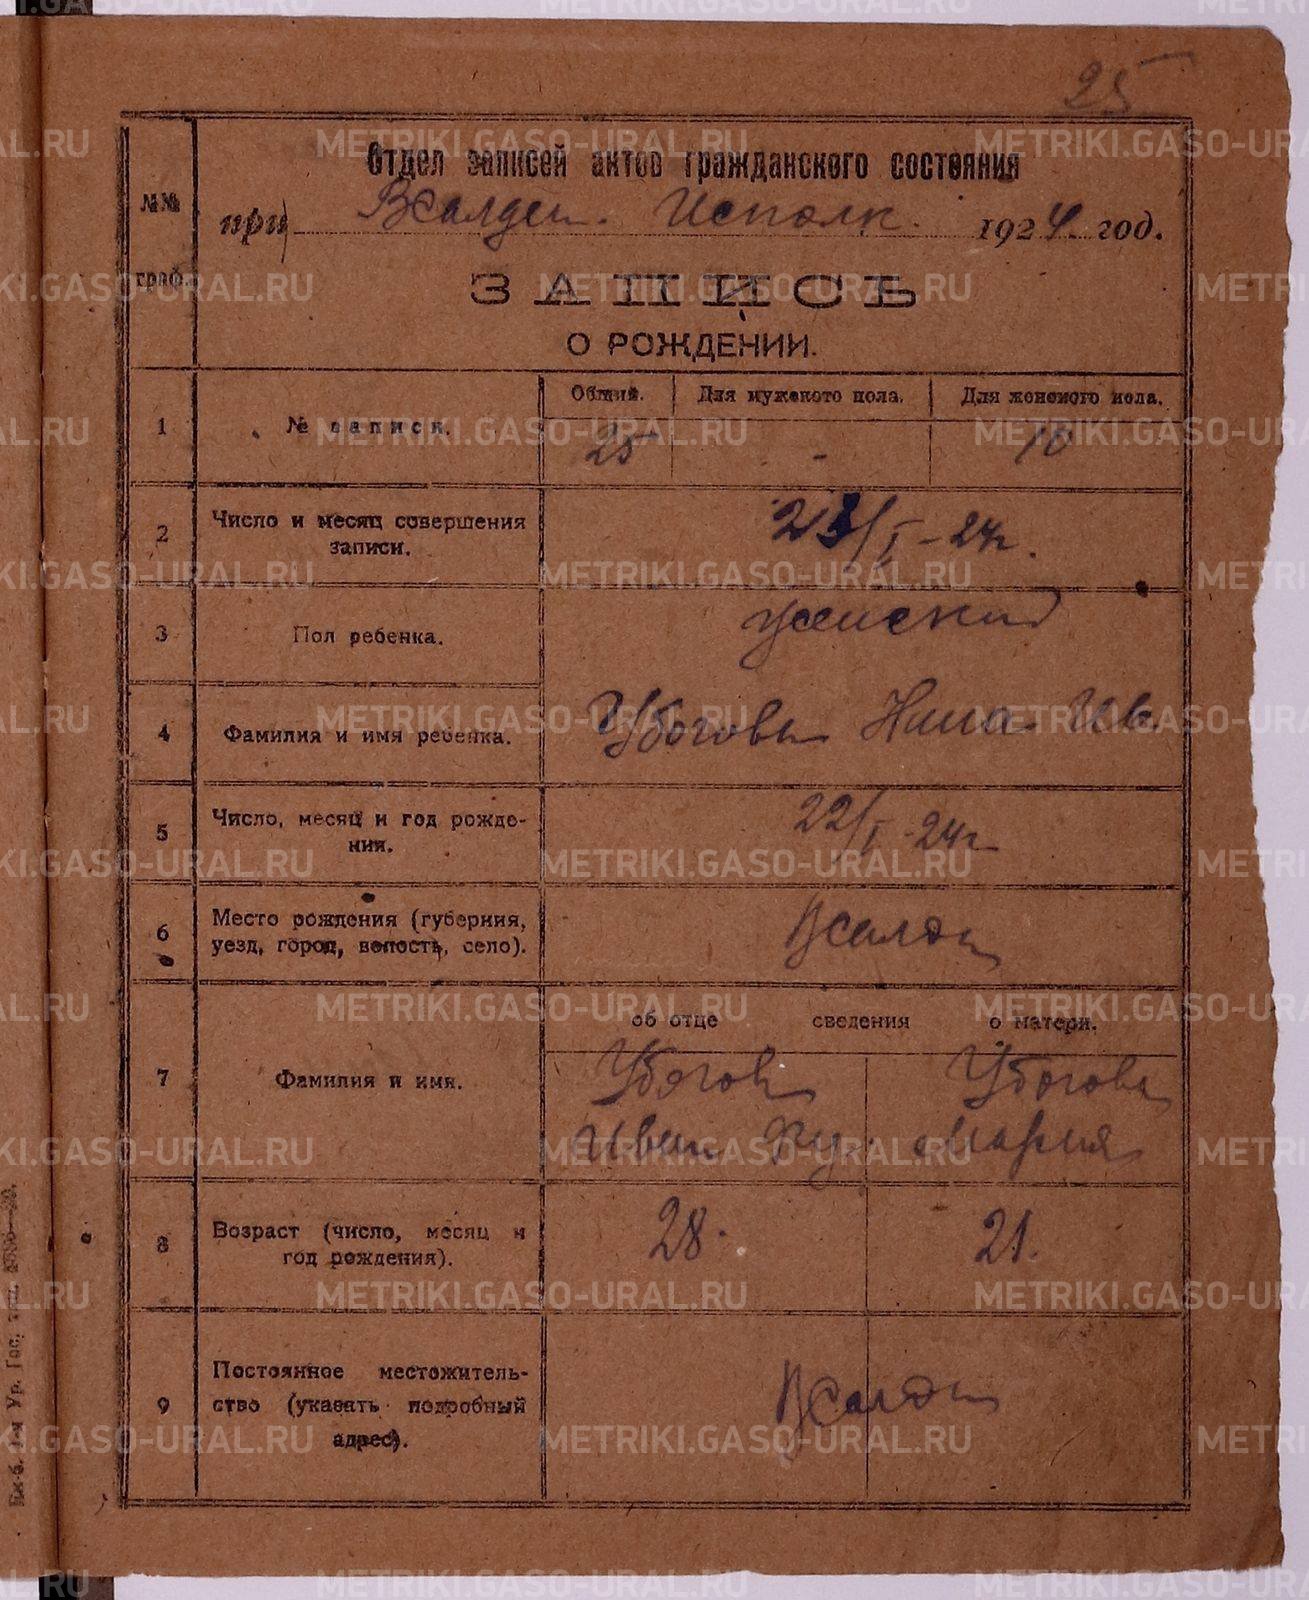 25
Отдел записей актов гражданского состояния
№№
граф.
при ВСалдин. Исполк. 1924 год.
ЗАПИСЬ
О РОЖДЕНИИ.
1
№ записи.
Общий. Для мужского пола. Для женского пола.
25 - 10
2
Число и месяц совершения
записи.
23/I-24г.
3
Пол ребенка.
женский
4
Фамилия и имя ребенка.
Убогова Нина Ив.
5
Число, месяц и год рожде-
ния.
22/I-24г
6
Место рождения (губерния,
уезд, город, волость, село).
ВСалда
7
Фамилия и имя.
об отце сведения о матери.
Убогов Убогова
Иван Фу. Мария
8
Возраст (число, месяц и
год рождения).
28. 21.
9
Постоянное местожитель-
ство (указать подробный
адрес).
ВСалда
METRIKI.GASO-URAL.RU